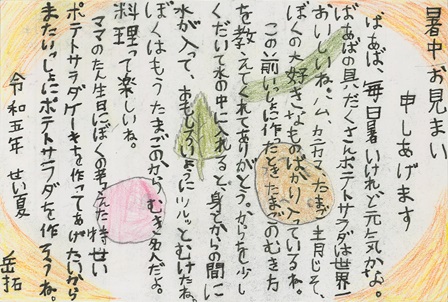 暑中お見まい
申しあげます
ばあば、毎日暑いけれど元気かな。
ばあばの具だくさんポテトサラダは世界一
おいしいね。ハム、カニカマ、たまご、青じそ、
ぼくの大好きなものばかり入っているね。
この前いっしょに作ったときたまごのむき方
を教えてくれてありがとう。からを少し
くだいて水の中に入れると身とからの間に
水が入って、おもしろいようにツルッとむけたね。
ぼくはもうたまごのからむき名人だよ。
料理って楽しいね。
ママのたん生日にぼくの考えた特せい
ポテトサラダケーキを作ってあげたいから
またいっしょにポテトサラダを作ろうね。
令和五年 せい夏
岳拓